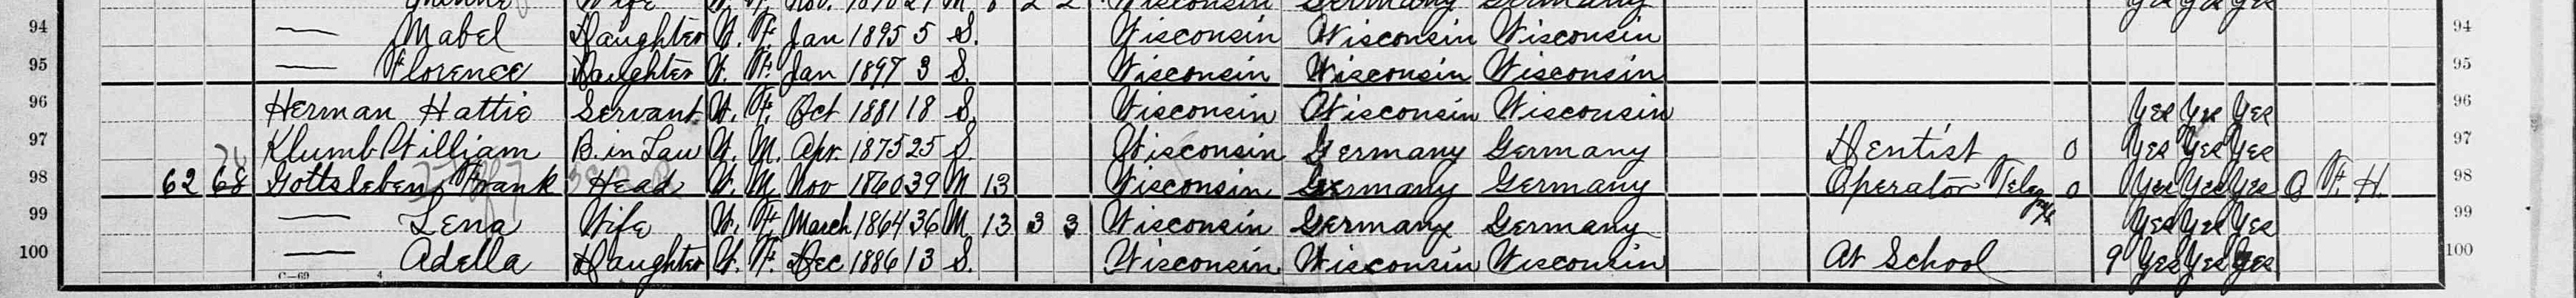 Wife W. F. Nov. M 2 2 Wisconsin Germany Germany yes yes yes
94 — Mabel Daughter W. F. Jan 1895 5 S. Wisconsin Wisconsin Wisconsin 94
95 — Florence Daughter W. F. Jan 1897 3 S. Wisconsin Wisconsin Wisconsin 95
96 Herman Hattie Servant W. F. Oct 1881 18 S. Wisconsin Wisconsin Wisconsin yes yes yes 96
97 Klumb William B. in Law W. M. Apr. 1875 25 S. Wisconsin Germany Germany Dentist 0 yes yes yes 97
98 62 68 Gottsleben Frank Head W. M. Nov 1860 39 M 13 Wisconsin Germany Germany Operator Telegraph 0 yes yes yes O F. H. 98
99 — Lena Wife W. F. March 1864 36 M 13 3 3 Wisconsin Germany Germany yes yes yes 99
100 — Adella Daughter W. F. Dec 1886 13 S. Wisconsin Wisconsin Wisconsin At School 9 yes yes yes 100
C-69 4